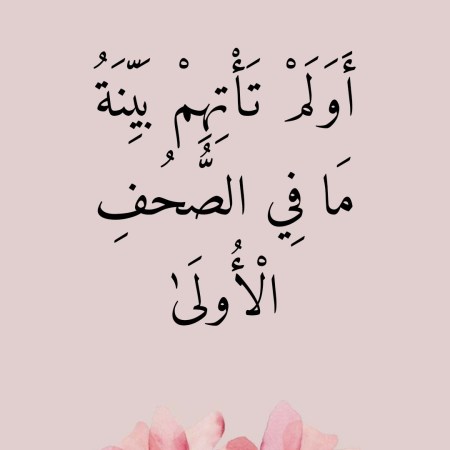 أَوَلَمْ تَأْتِهِمْ بَيِّنَةُ
مَا فِي الصُّحُفِ
الْأُولَىٰ